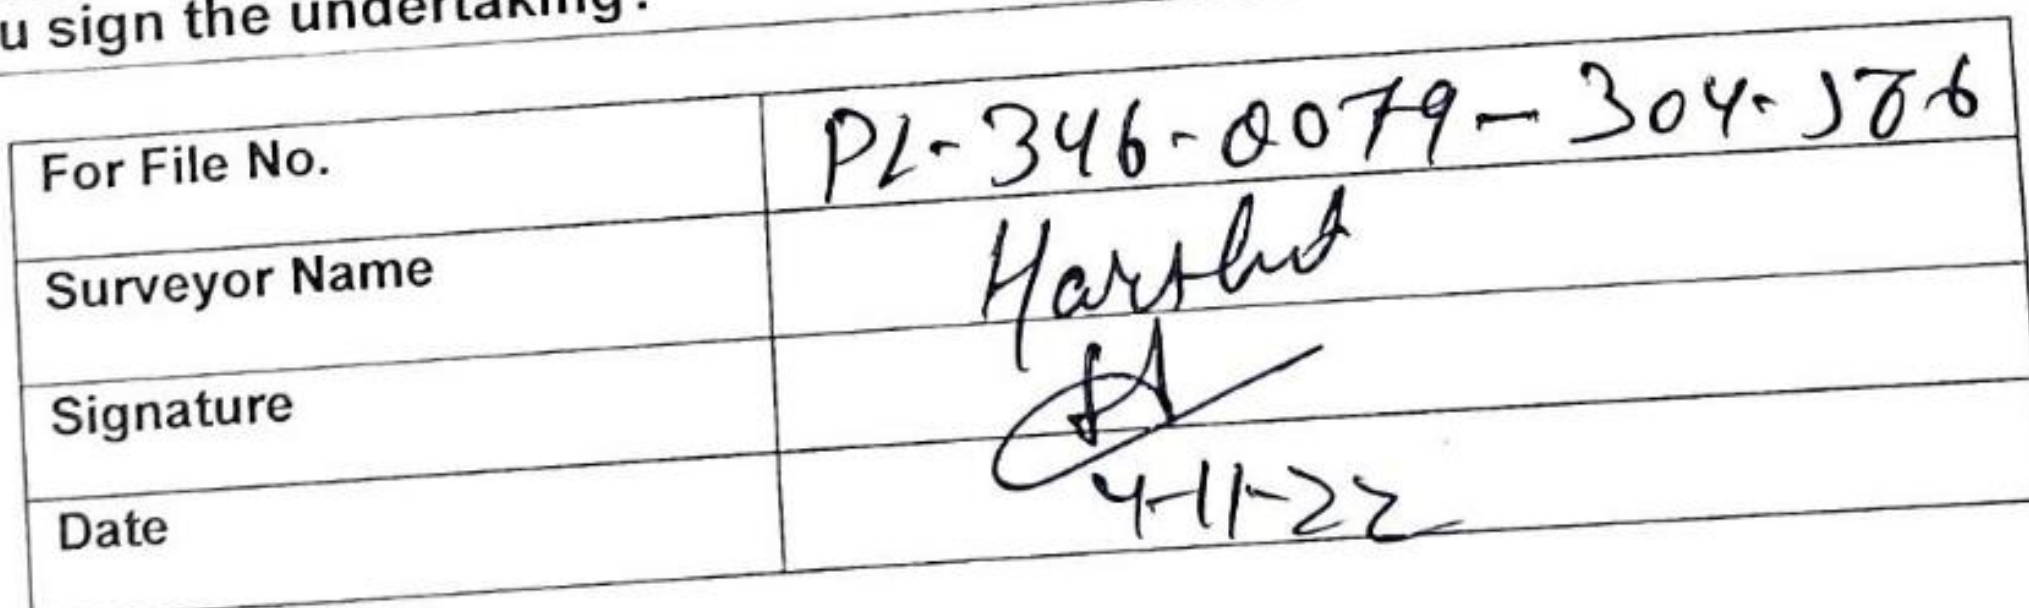 u sign the undertaking?
For File No. PL-346-0079-304-386
Surveyor Name Harshit
Signature
Date 4-11-22